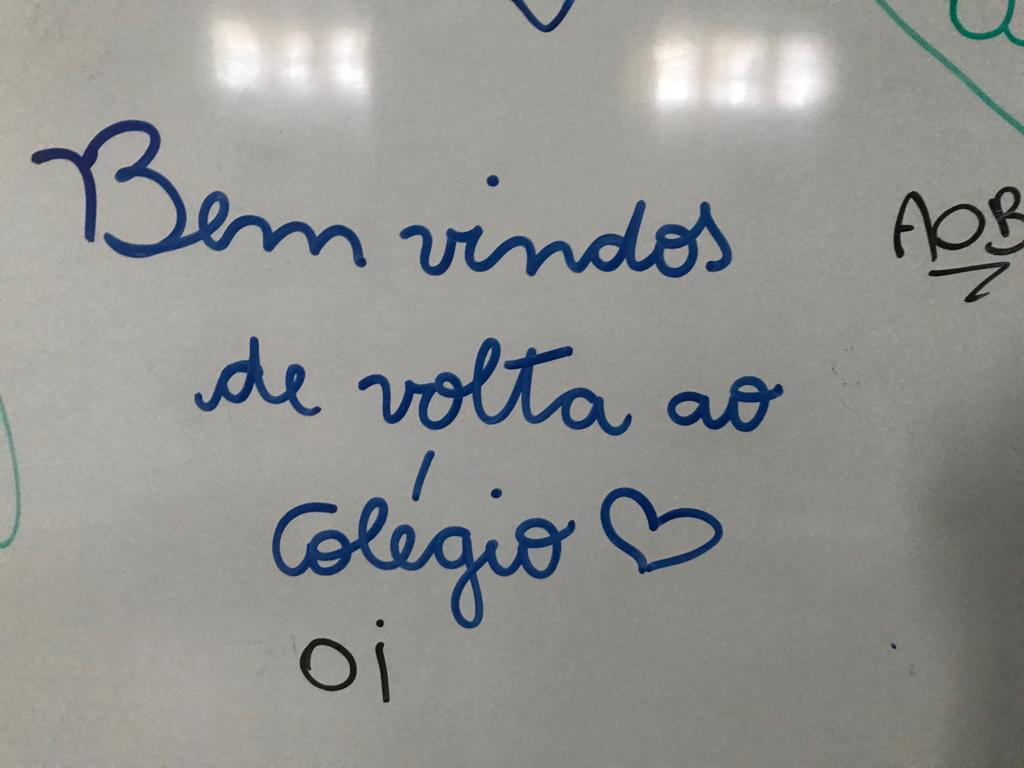 Bem vindos
de volta ao
Colégio ♡
oi
AOB